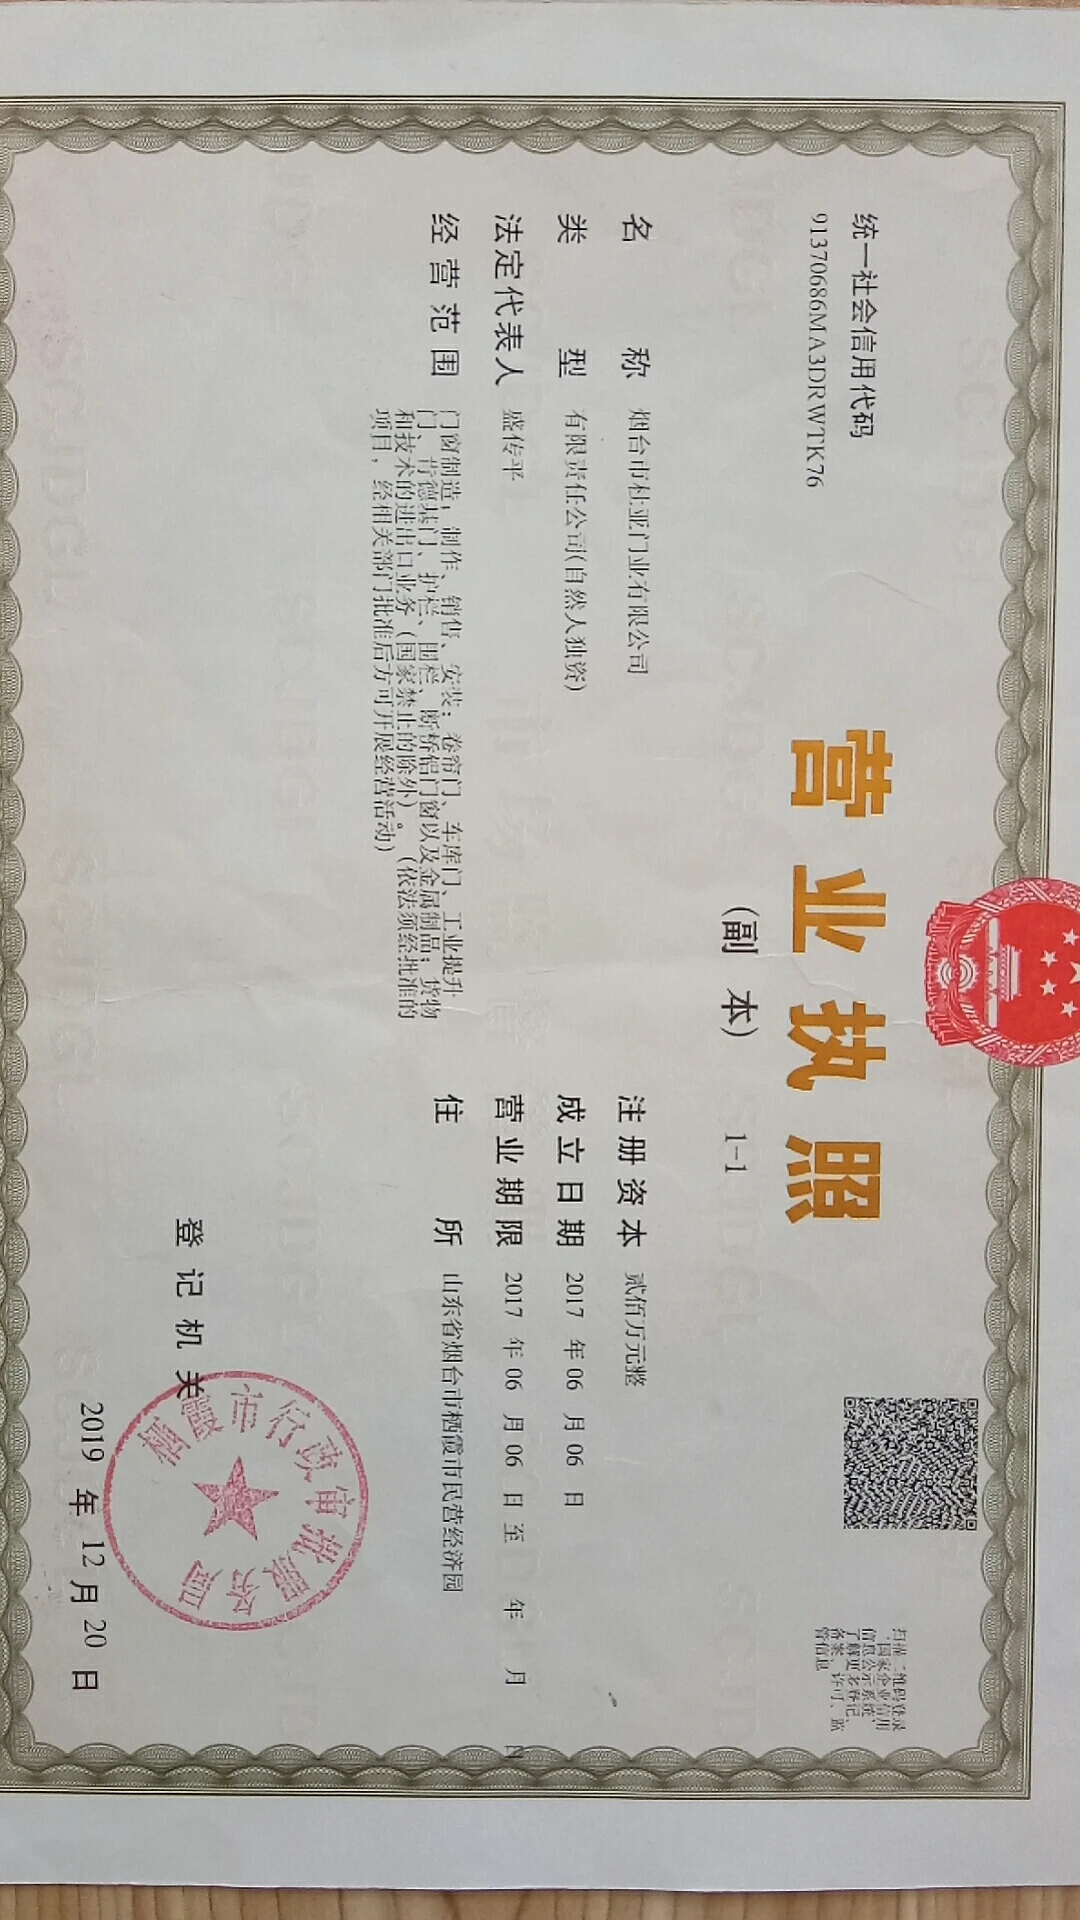 统一社会信用代码
91370686MA3DRWTK76
营业执照
(副 本) 1-1
扫描二维码登录
'国家企业信用
信息公示系统'
了解更多登记、
备案、许可、监
管信息
名 称 烟台市杜亚门业有限公司
类 型 有限责任公司(自然人独资)
法定代表人 盛传平
经营范围 门窗制造，制作、销售、安装：卷帘门、车库门、工业提升
门、肯德基门、护栏、围栏、断桥铝门窗以及金属制品；货物
和技术的进出口业务（国家禁止的除外）。（依法须经批准的
项目，经相关部门批准后方可开展经营活动）
注册资本 贰佰万元整
成立日期 2017 年 06 月 06 日
营业期限 2017 年 06 月 06 日 至 年 月 日
住 所 山东省烟台市栖霞市民营经济园
登记机关
栖霞市行政审批服务局
2019 年 12 月 20 日